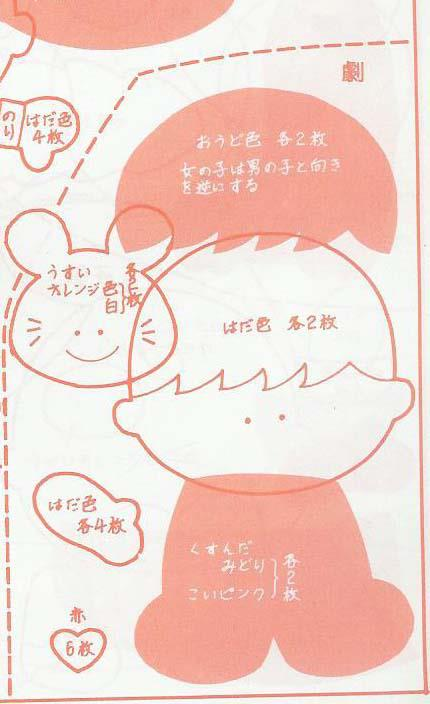 劇
のり
はだ色
4枚
おうど色 各2枚
女の子は男の子と向き
を逆にする
うすい
オレンジ色
白
各2枚
はだ色 各2枚
はだ色
各4枚
くすんだ
みどり
こいピンク
各2枚
赤
6枚